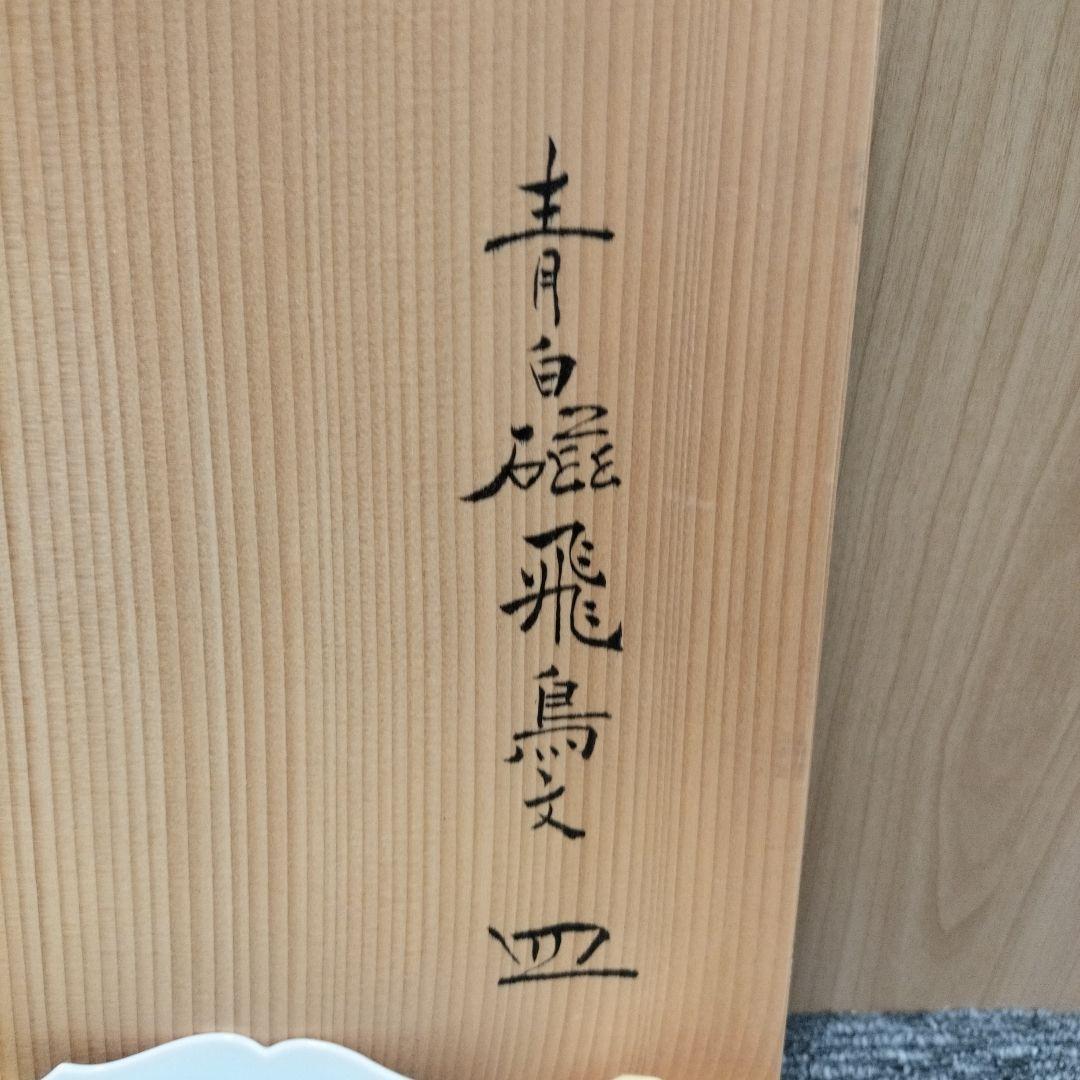 青白磁飛鳥文皿